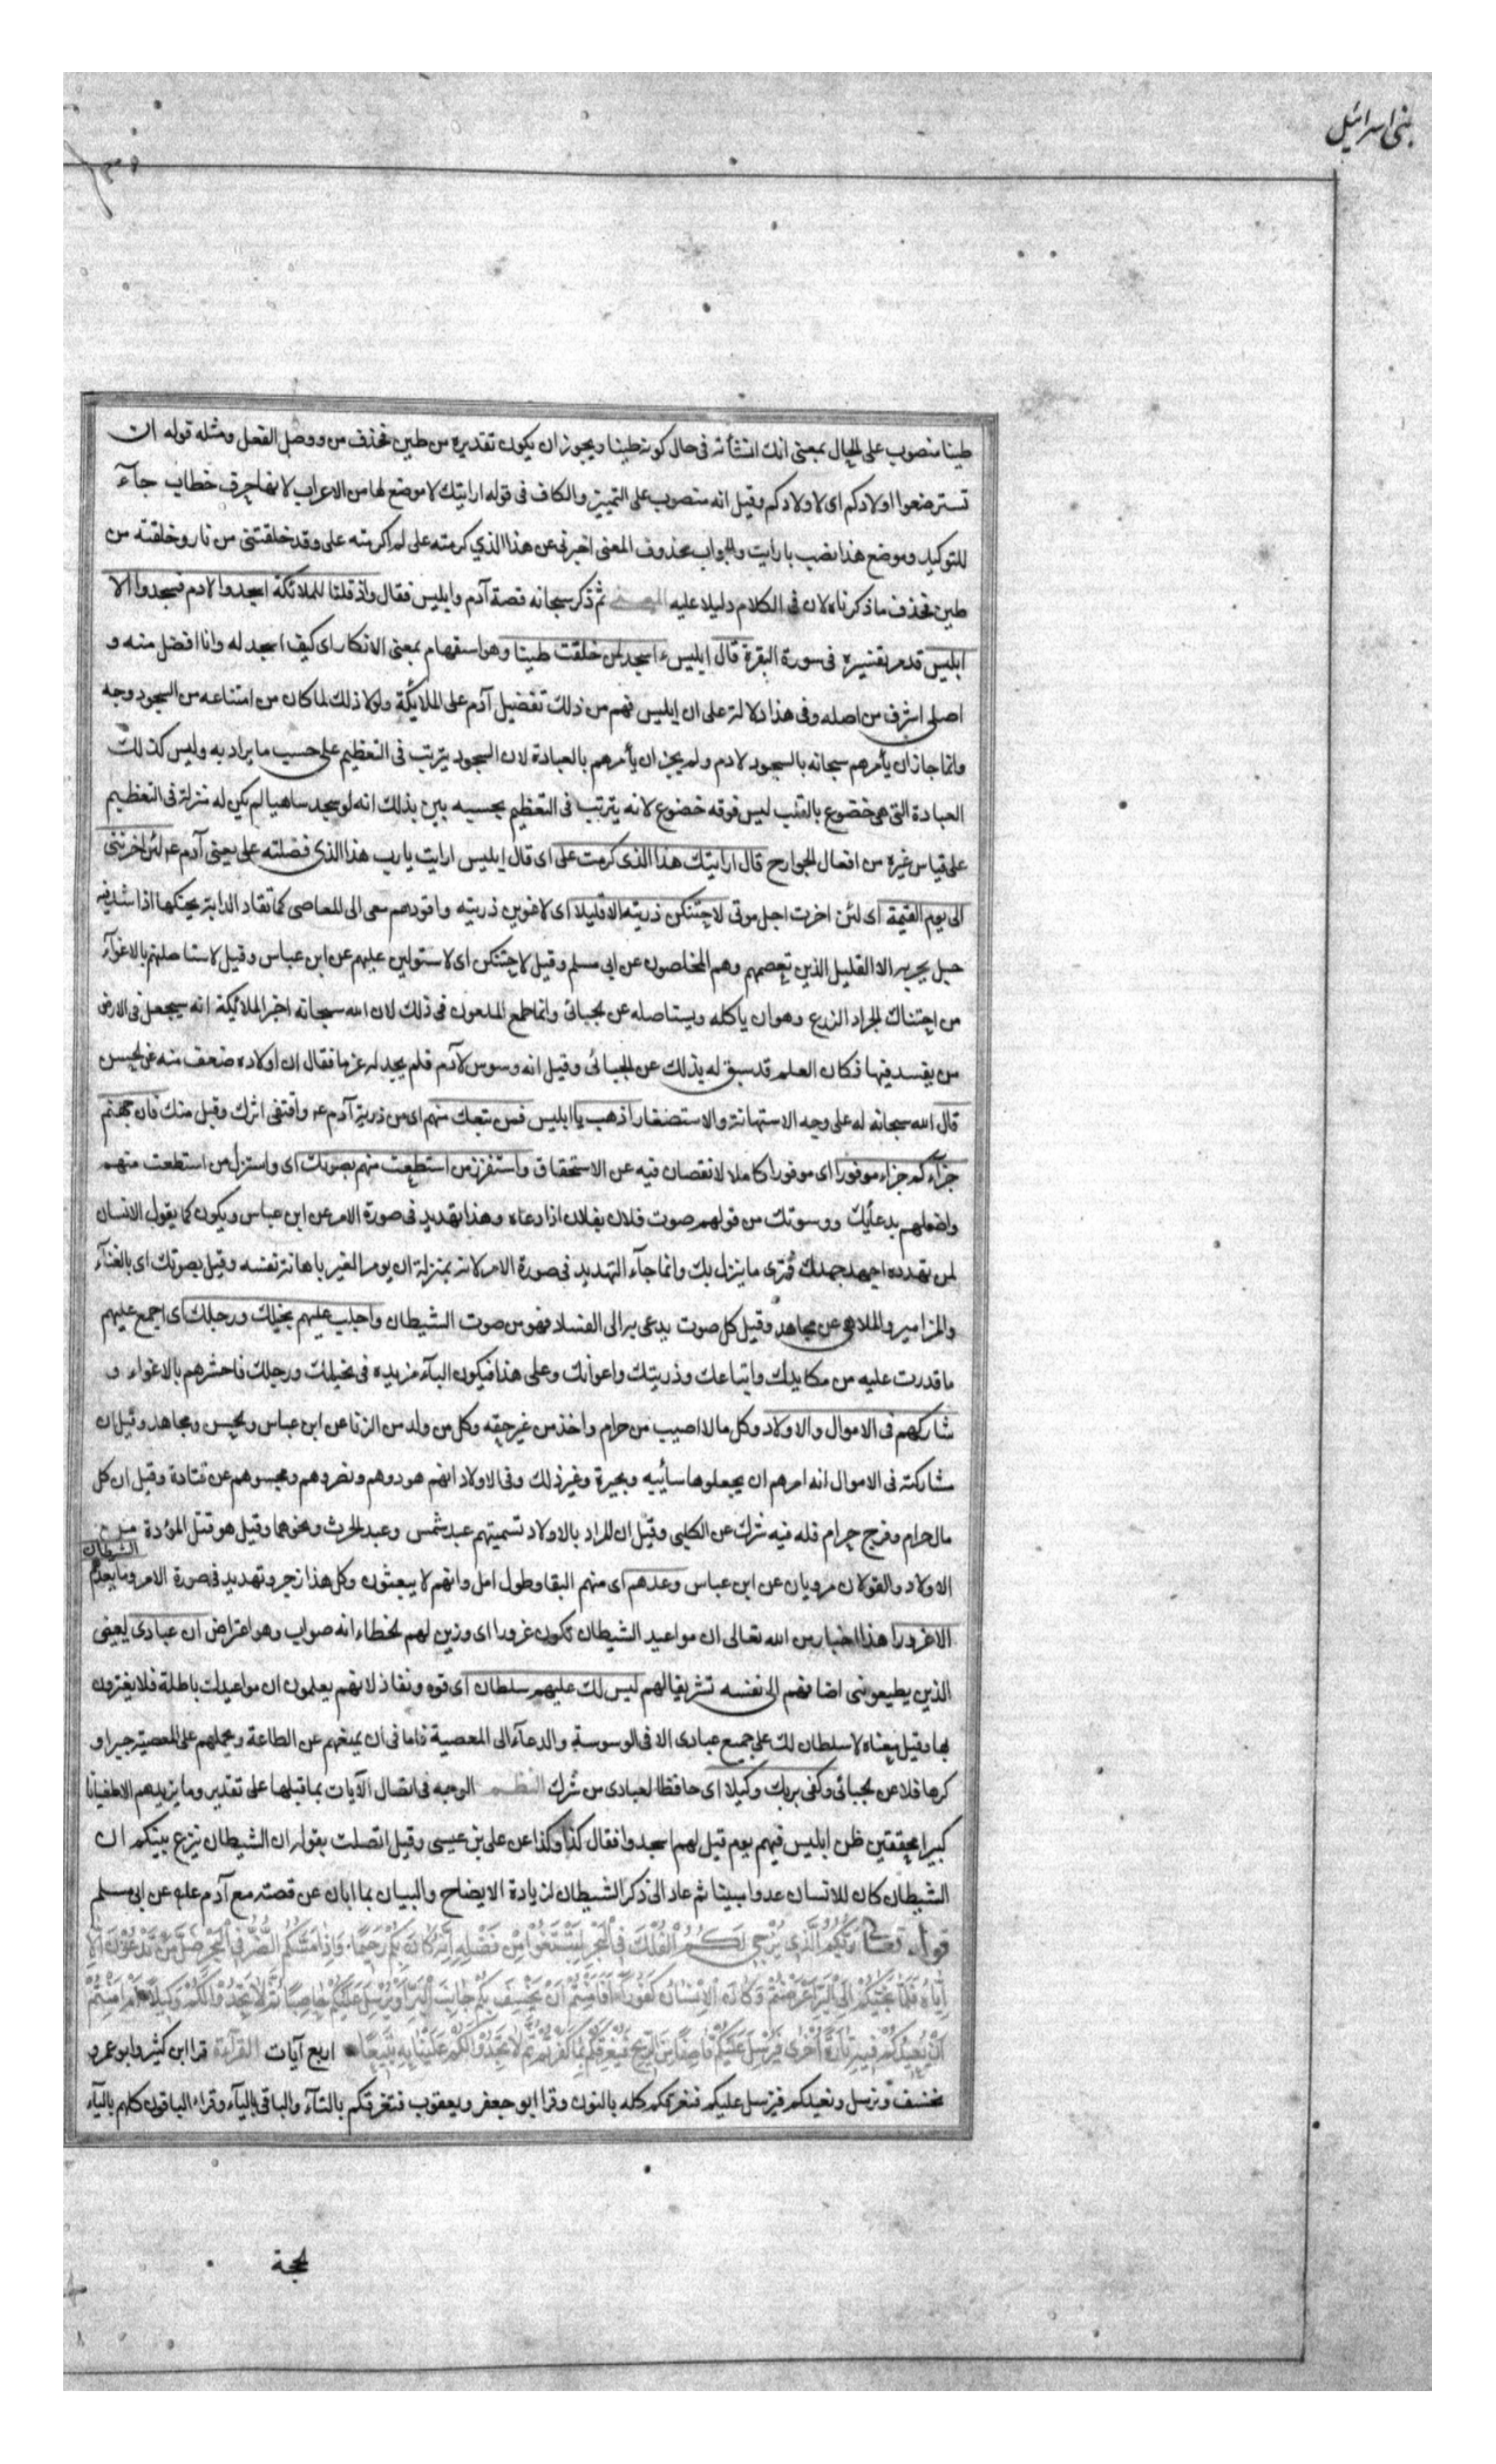 بنی اسرائیل
طينا منصوب على الحال بمعنى انك انشأته فى حال كونه طينا ويجوز ان يكون تقديره من طين فحذف من ووصل الفعل ومثله قوله ان
تسترضعوا اولادكم اى لاولادكم وقيل انه منصوب على التميز والكاف فى قوله ارايتك لا موضع لها من الاعراب لانها حرف خطاب جآء
للتوكيد وموضع هذا نصب بارايت والجواب محذوف المعنى اخبرنى عن هذا الذي كرمته على لم اكرمته على وقد خلقتنى من نار وخلقته من
طين فحذف ما ذكرناه لان فى الكلام دليلا عليه المعنى ثم ذكر سبحانه قصة آدم وابليس فقال واذ قلنا للملائكة اسجدوا لادم فسجدوا الا
ابليس قد مر تفسيره فى سورة البقرة قال ابليس ءاسجد لمن خلقت طينا وهو استفهام بمعنى الانكار اى كيف اسجد له وانا افضل منه و
اصلى اشرف من اصله وفى هذا دلالة على ان ابليس فهم من ذلك تفضيل آدم على الملايكة ولولا ذلك لما كان من امتناعه من السجود وجه
وانما جاز ان يأمرهم سبحانه بالسجود لادم ولم يجز ان يأمرهم بالعبادة لان السجود يترتب فى التعظيم على حسب ما يراد به وليس كذلك
العبادة التى هى خضوع بالقلب ليس فوقه خضوع لانه يترتب فى التعظيم بحسبه يبين بذلك انه لو سجد ساهيا لم يكن له منزلة فى التعظيم
على قياس غيره من افعال الجوارح قال ارايتك هذا الذى كرمت على اى قال ابليس ارايت يا رب هذا الذى فضلته على يعنى آدم عم لئن اخرتنى
الى يوم القيمة اى لئن اخرت اجل موتى لاحتنكن ذريته الا قليلا اى لاغوين ذريته واقودهم معى الى المعاصى كما تقاد الدابة بحنكها اذا شد فيه
حبل يجر به الا القليل الذين تعصمهم وهم المخلصون عن ابى مسلم وقيل لاحتنكن اى لاستولين عليهم عن ابن عباس وقيل لاستاصلنهم بالاغوآء
من احتناك الجراد الزرع وهو ان ياكله ويستاصله عن الجبائى وانما طمع الملعون فى ذلك لان الله سبحانه اخبر الملائكة انه سيجعل فى الارض
من يفسد فيها فكان العلم قد سبق له بذلك عن الجبائى وقيل انه وسوس لآدم فلم يجد له عزما فقال ان اولاده ضعف منه عن الحسن
قال الله سبحانه له على وجه الاستهانة والاستصغار اذهب يا ابليس فمن تبعك منهم اى من ذرية آدم عم واقتفى اثرك وقبل منك فان جهنم
جزآؤكم جزاء موفورا اى موفورا كاملا لا نقصان فيه عن الاستحقاق واستفزز من استطعت منهم بصوتك اى واستزل من استطعت منهم
واضلهم بدعائك ووسوستك من قولهم صوت فلان بفلان اذا دعاه وهذا تهديد فى صورة الامر عن ابن عباس ويكون كما يقول الانسان
لمن تهدده اجهد جهدك فترى ما ينزل بك وانما جآء التهديد فى صورة الامر لانه بمنزلة ان يومر الغير باهانة نفسه وقيل بصوتك اى بالغنآء
والمزامير والملاهى عن مجاهد وقيل كل صوت يدعى به الى الفساد فهو من صوت الشيطان واجلب عليهم بخيلك ورجلك اى اجمع عليهم
ما قدرت عليه من مكايدك واتباعك وذريتك واعوانك وعلى هذا فيكون البآء مزيده فى بخيلك ورجلك فاحشرهم بالاغواء و
شاركهم فى الاموال والاولاد وكل مال اصيب من حرام واخذ من غير حقه وكل من ولد من الزنا عن ابن عباس والحسن ومجاهد وقيل ان
مشاركته فى الاموال انه امرهم ان يجعلوها سائبه وبحيرة وغير ذلك وفى الاولاد انهم هودوهم ونصروهم ومجسوهم عن قتادة وقيل ان كل
مال حرام وفرج حرام فله فيه شرك عن الكلبى وقيل ان المراد بالاولاد تسميتهم عبد شمس وعبد الحرث ونحوهما وقيل هو قتل الموؤدة من
الاولاد والقولان مرويان عن ابن عباس وعدهم اى منهم البقا وطول امل وانهم لا يبعثون وكل هذا زجر وتهديد فى صورة الامر وما يعدهم الشيطان
الا غرورا هذا اخبار من الله تعالى ان مواعيد الشيطان تكون غرورا اى وزين لهم الخطاء انه صواب وهو اعتراض ان عبادى يعنى
الذين يطيعوننى اضافهم الى نفسه تشريفا لهم ليس لك عليهم سلطان اى قوه ونفاذ لانهم يعلمون ان مواعيدك باطلة فلا يغترون
بها وقيل معناه لا سلطان لك على جميع عبادى الا فى الوسوسة والدعآء الى المعصية فاما فى ان يمنعهم عن الطاعة ويحملهم على المعصية جبرا و
كرها فلا عن الجبائى وكفى بربك وكيلا اى حافظا لعبادى من شرك النظم الوجه فى اتصال الآيات بما قبلها على تقدير وما يزيدهم الا طغيانا
كبيرا محققين ظن ابليس فيهم يوم قيل لهم اسجدوا فقال كذا وكذا عن على بن عيسى وقيل اتصلت بقوله ان الشيطان ينزغ بينكم ان
الشيطان كان للانسان عدوا مبينا ثم عاد الى ذكر الشيطان لزيادة الايضاح والبيان بما ابان عن قصته مع آدم علم عن ابى مسلم
قوله تعالى رَبُّكُمُ الَّذِى يُزْجِى لَكُمُ الْفُلْكَ فِى الْبَحْرِ لِتَبْتَغُوا مِنْ فَضْلِهِ اِنَّهُ كَانَ بِكُمْ رَحِيمًا وَاِذَا مَسَّكُمُ الضُّرُّ فِى الْبَحْرِ ضَلَّ مَنْ تَدْعُونَ اِلَّا
اِيَّاهُ فَلَمَّا نَجَّيكُمْ اِلَى الْبَرِّ اَعْرَضْتُمْ وَكَانَ الْاِنْسَانُ كَفُورًا اَفَاَمِنْتُمْ اَنْ يَخْسِفَ بِكُمْ جَانِبَ الْبَرِّ اَوْ يُرْسِلَ عَلَيْكُمْ حَاصِبًا ثُمَّ لَا تَجِدُوا لَكُمْ وَكِيلًا اَمْ اَمِنْتُمْ
اَنْ يُعِيدَكُمْ فِيهِ تَارَةً اُخْرَى فَيُرْسِلَ عَلَيْكُمْ قَاصِفًا مِنَ الرِّيحِ فَيُغْرِقَكُمْ بِمَا كَفَرْتُمْ ثُمَّ لَا تَجِدُوا لَكُمْ عَلَيْنَا بِهِ تَبِيعًا اربع آيات القرآءة قرا ابن كثير وابو عمرو
نخسف ونرسل ونعيدكم فنرسل عليكم فنغرقكم كله بالنون وقرا ابو جعفر ويعقوب فتغرقكم بالتآء والباقى باليآء وقراء الباقون كلهم باليآء